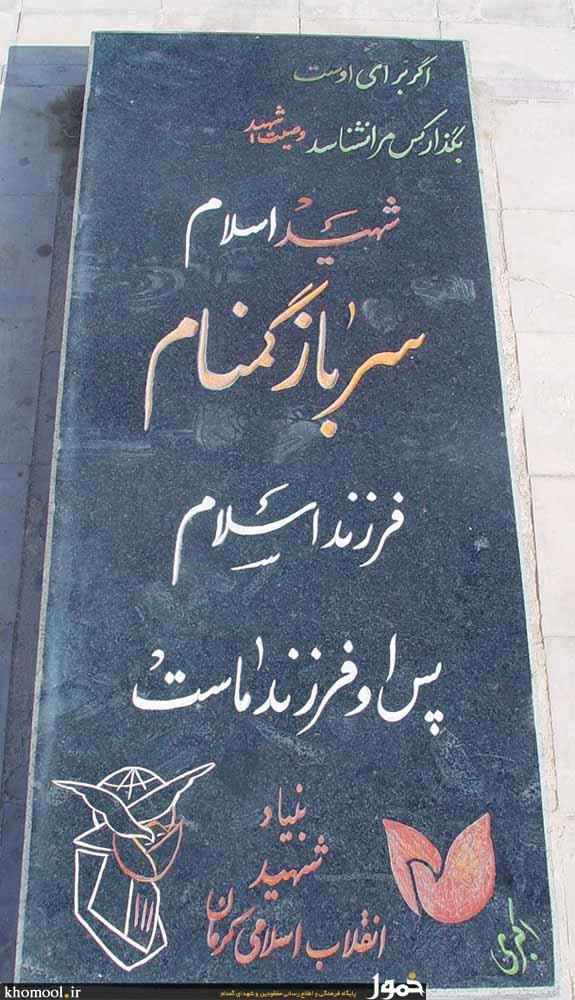 اگر برای اوست
بگذار کس مرا نشناسد وصیت شهید
شهید اسلام
سرباز گمنام
فرزند اسلام
پس او فرزند ماست
بنیاد
شهید
انقلاب اسلامی کرمان
khomool.ir
پایگاه فرهنگی و اطلاع رسانی مفقودین و شهدای گمنام
خمول